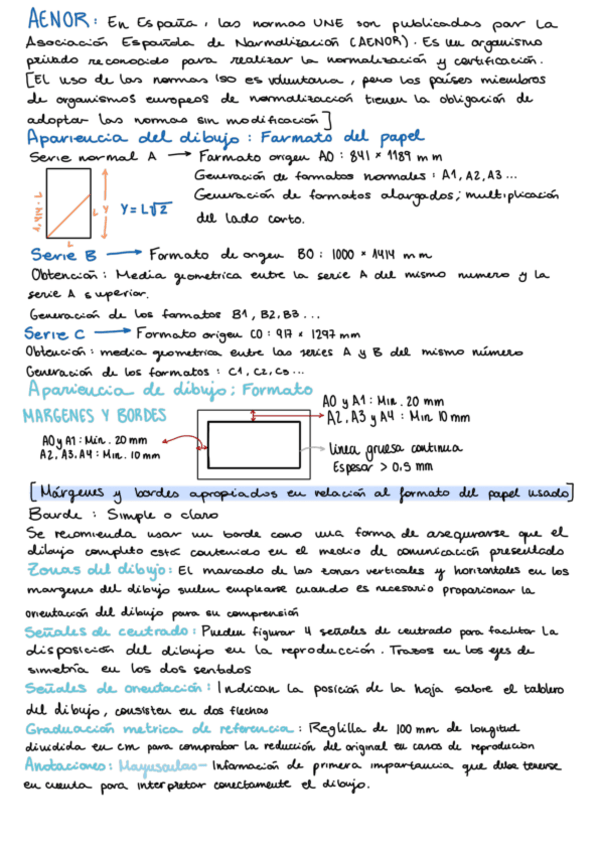 AENOR: En España, las normas UNE son publicadas por la
Asociación Española de Normalización (AENOR). Es un organismo
privado reconocido para realizar la normalización y certificación.
[El uso de las normas ISO es voluntaria, pero los países miembros
de organismos europeos de normalización tienen la obligación de
adoptar las normas sin modificación]
Apariencia del dibujo: Formato del papel
Serie normal A → Formato origen A0: 841 × 1189 mm
Generación de formatos normales: A1, A2, A3...
Generación de formatos alargados; multiplicación
del lado corto.
L
Y
L
Y = L√2
Serie B → Formato de origen B0: 1000 × 1414 mm
Obtención: Media geometrica entre la serie A del mismo numero y la
serie A superior.
Generación de los formatos B1, B2, B3...
Serie C → Formato origen C0: 917 × 1297 mm
Obtención: media geometrica entre las series A y B del mismo número
Generación de los formatos: C1, C2, C3...
Apariencia de dibujo; Formato
MARGENES Y BORDES
A0 y A1: Min. 20 mm
A2, A3 y A4: Min 10 mm
A0 y A1: Min. 20 mm
A2, A3, A4: Min. 10 mm
línea gruesa continua
Espesor > 0,5 mm
[Márgenes y bordes apropiados en relación al formato del papel usado]
Borde: Simple o claro
Se recomienda usar un borde como una forma de asegurarse que el
dibujo completo está contenido en el medio de comunicación presentado
Zonas del dibujo: El marcado de las zonas verticales y horizontales en los
margenes del dibujo suelen emplearse cuando es necesario proporionar la
orientación del dibujo para su comprensión
Señales de centrado: Pueden figurar 4 señales de centrado para facilitar la
disposición del dibujo en la reproducción. Trazos en los ejes de
simetría en los dos sentidos
Señales de orientación: Indican la posición de la hoja sobre el tablero
del dibujo, consisten en dos flechas
Graduación metrica de referencia: Reglilla de 100 mm de longitud
dividida en cm para comprobar la reducción del original en casos de reproducion
Anotaciones: Mayusculas- Información de primera importancia que debe tenerse
en cuenta para interpretar correctamente el dibujo.